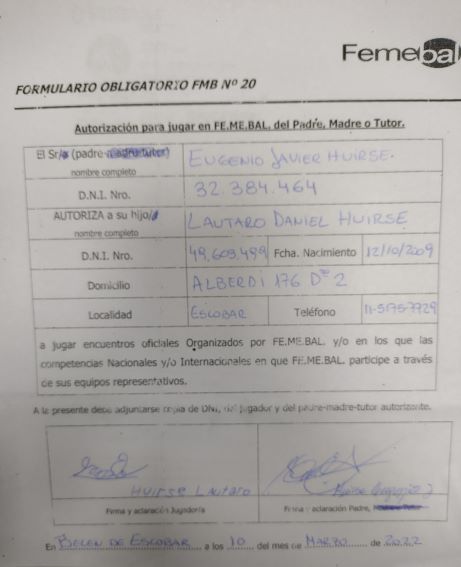 Femebal
FORMULARIO OBLIGATORIO FMB Nº 20
Autorización para jugar en FE.ME.BAL. del Padre, Madre o Tutor.
El Sr/a (padre-madre-tutor) EUGENIO JAVIER HUIRSE.
nombre completo
D.N.I. Nro. 32.384.464
AUTORIZA a su hijo/a LAUTARO DANIEL HUIRSE
nombre completo
D.N.I. Nro. 49.603.499 Fcha. Nacimiento 12/10/2009
Domicilio ALBERDI 176 Dte 2
Localidad ESCOBAR Teléfono 11-5175-7729
a jugar encuentros oficiales Organizados por FE.ME.BAL. y/o en los que las
competencias Nacionales y/o Internacionales en que FE.ME.BAL. participe a través
de sus equipos representativos.
A la presente debe adjuntarse copia de DNI, del jugador y del padre-madre-tutor autorizante.
Huirse Lautaro Huirse Eugenio J
Firma y aclaración Jugador/a Firma y aclaración Padre, Madre o Tutor
En BELEN DE ESCOBAR a los 10 del mes de MARZO de 2022